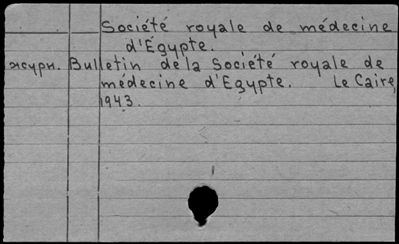 Société royale de médecine
d'Egypte.
жсурн. Bulletin de la Société royale de
médecine d'Egypte. Le Caire,
1943.